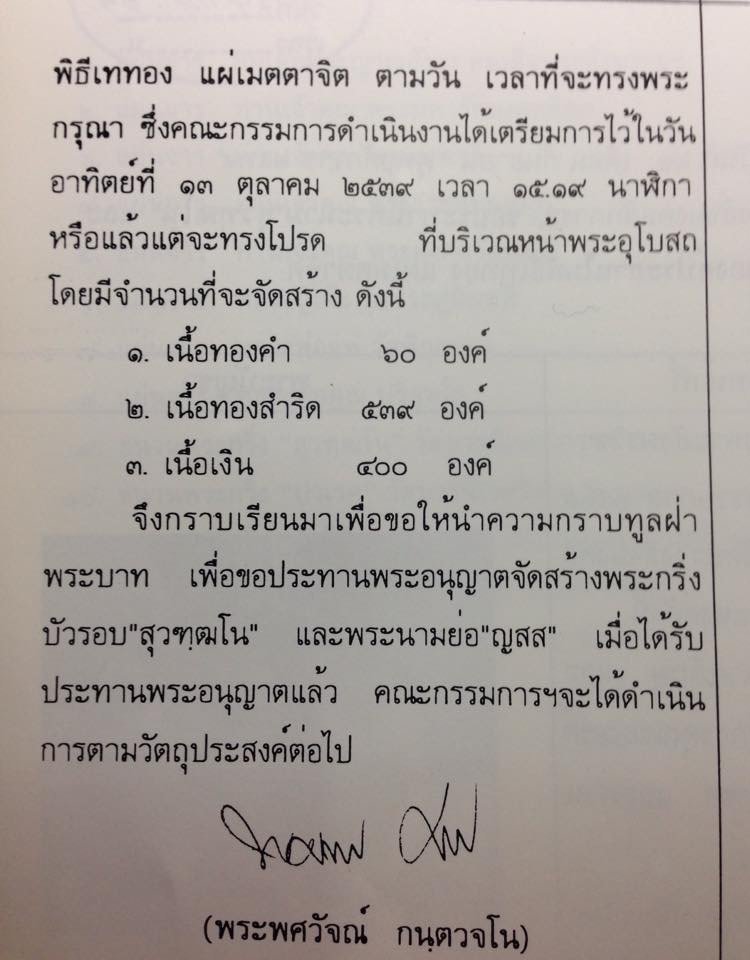 พิธีเททอง แผ่เมตตาจิต ตามวัน เวลาที่จะทรงพระ
กรุณา ซึ่งคณะกรรมการดำเนินงานได้เตรียมการไว้ในวัน
อาทิตย์ที่ ๑๓ ตุลาคม ๒๕๓๙ เวลา ๑๕.๑๙ นาฬิกา
หรือแล้วแต่จะทรงโปรด ที่บริเวณหน้าพระอุโบสถ
โดยมีจำนวนที่จะจัดสร้าง ดังนี้
๑. เนื้อทองคำ ๖๐ องค์
๒. เนื้อทองสำริด ๕๓๙ องค์
๓. เนื้อเงิน ๔๐๐ องค์
จึงกราบเรียนมาเพื่อขอให้นำความกราบทูลฝ่า
พระบาท เพื่อขอประทานพระอนุญาตจัดสร้างพระกริ่ง
บัวรอบ"สุวฑฺฒโน" และพระนามย่อ"ญสส" เมื่อได้รับ
ประทานพระอนุญาตแล้ว คณะกรรมการฯจะได้ดำเนิน
การตามวัตถุประสงค์ต่อไป
(พระพศวัจณ์ กนฺตวจโน)